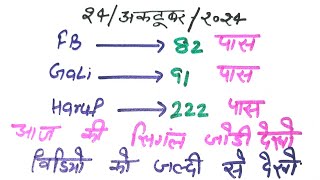 24/अकटूबर/2024
FB → 82 पास
GaLi → 91 पास
Haruf → 222 पास
आज की सिगंल जोडी देखो
विडियो को जल्दी से देखो